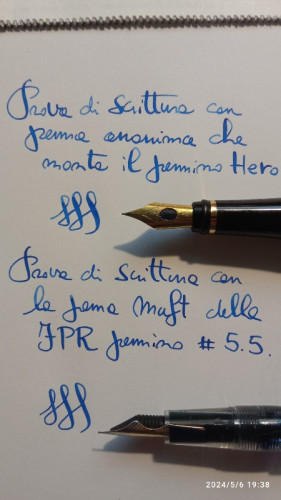 Prova di scrittura con
penna anonima che
monta il pennino Hero
Prova di scrittura con
la penna Muft della
FPR pennino # 5.5.
2024/5/6 19:38